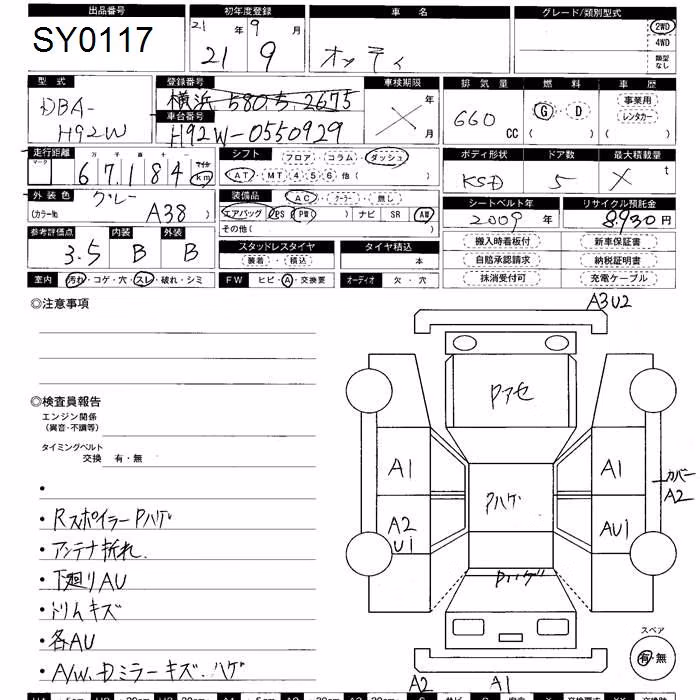 出品番号 初年度登録 車名 グレード/類別型式
SY0117 21年 9月 2WD
21 9 オッティ 4WD
類型なし
型式 登録番号 車検期限 排気量 燃料 車歴
DBA- 横浜 580 ち 2675 年 事業用
車台番号 660 CC G・D レンタカー
H92W H92W-0550929 × 月 ( ) ( )
走行距離 シフト フロア・コラム・ダッシュ ボディ形状 ドア数 最大積載量
マーク 万 千 百 十 マイル
67,184 km AT・MT 4 5 6 他( ) KSD 5 × t
外装色 グレー 装備品 AC・クーラー・無し シートベルト年 リサイクル預託金
(カラーNo. A38) エアバッグ PS PW( ) ナビ SR AW 2009年 8,930円
その他( )
参考評価点 内装 外装 搬入時看板付 新車保証書
3.5 B B スタッドレスタイヤ タイヤ積込 自賠承認請求 納税証明書
装着・積込 本
室内 汚れ・コゲ・穴・スレ・破れ・シミ FW ヒビ・A・交換要 オーディオ 欠・穴 抹消受付可 充電ケーブル
◎注意事項
A3U2
Pアセ
◎検査員報告
エンジン関係
(異音・不調等)
タイミングベルト
交換 有・無
A1 A1
カバー
A2
Pハゲ
A2 AU1
U1
・
・Rスポイラー Pハゲ
・アンテナ折れ.
・下廻りAU
Pハゲ
・トリムキズ
・各AU
スペア
有・無
・A/W.Dミラーキズ.ハゲ
A2 A1